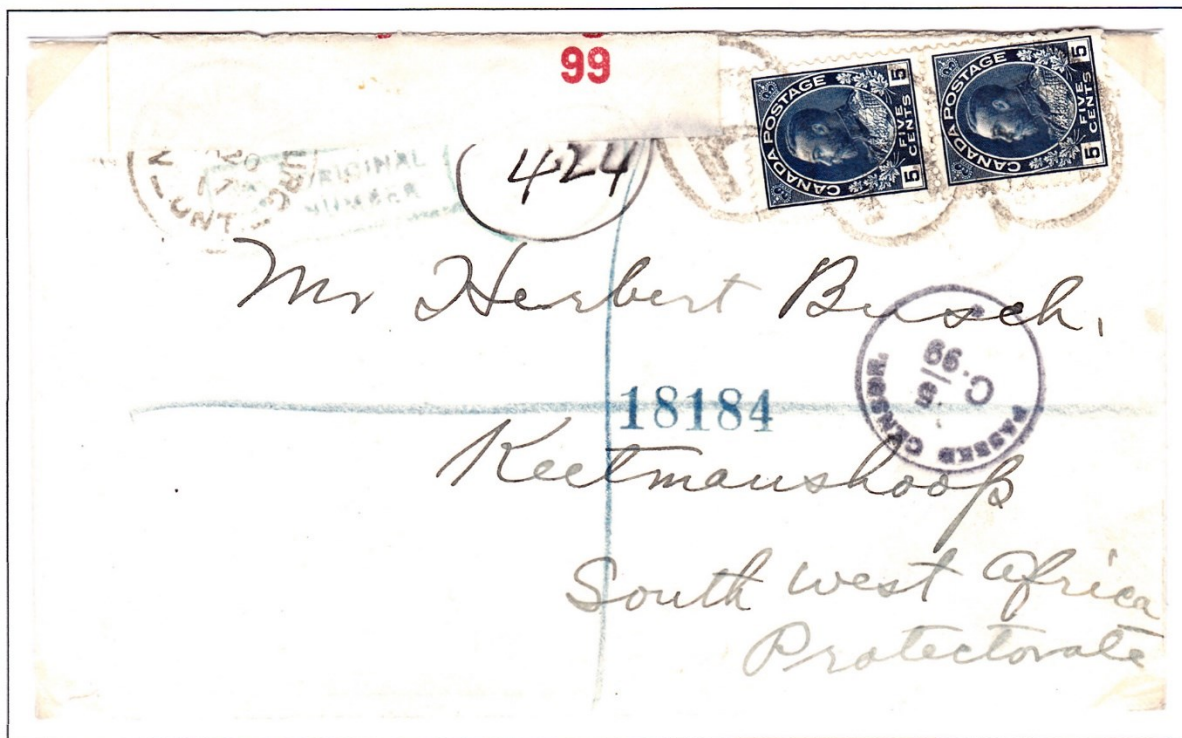 99
CANADA POSTAGE
5 FIVE CENTS 5
CANADA POSTAGE
5 FIVE CENTS 5
ORIGINAL
NUMBER
424
Mr Herbert Busch,
PASSED CENSOR.
C.99
18184
Keetmanshoop
South West Africa
Protectorate